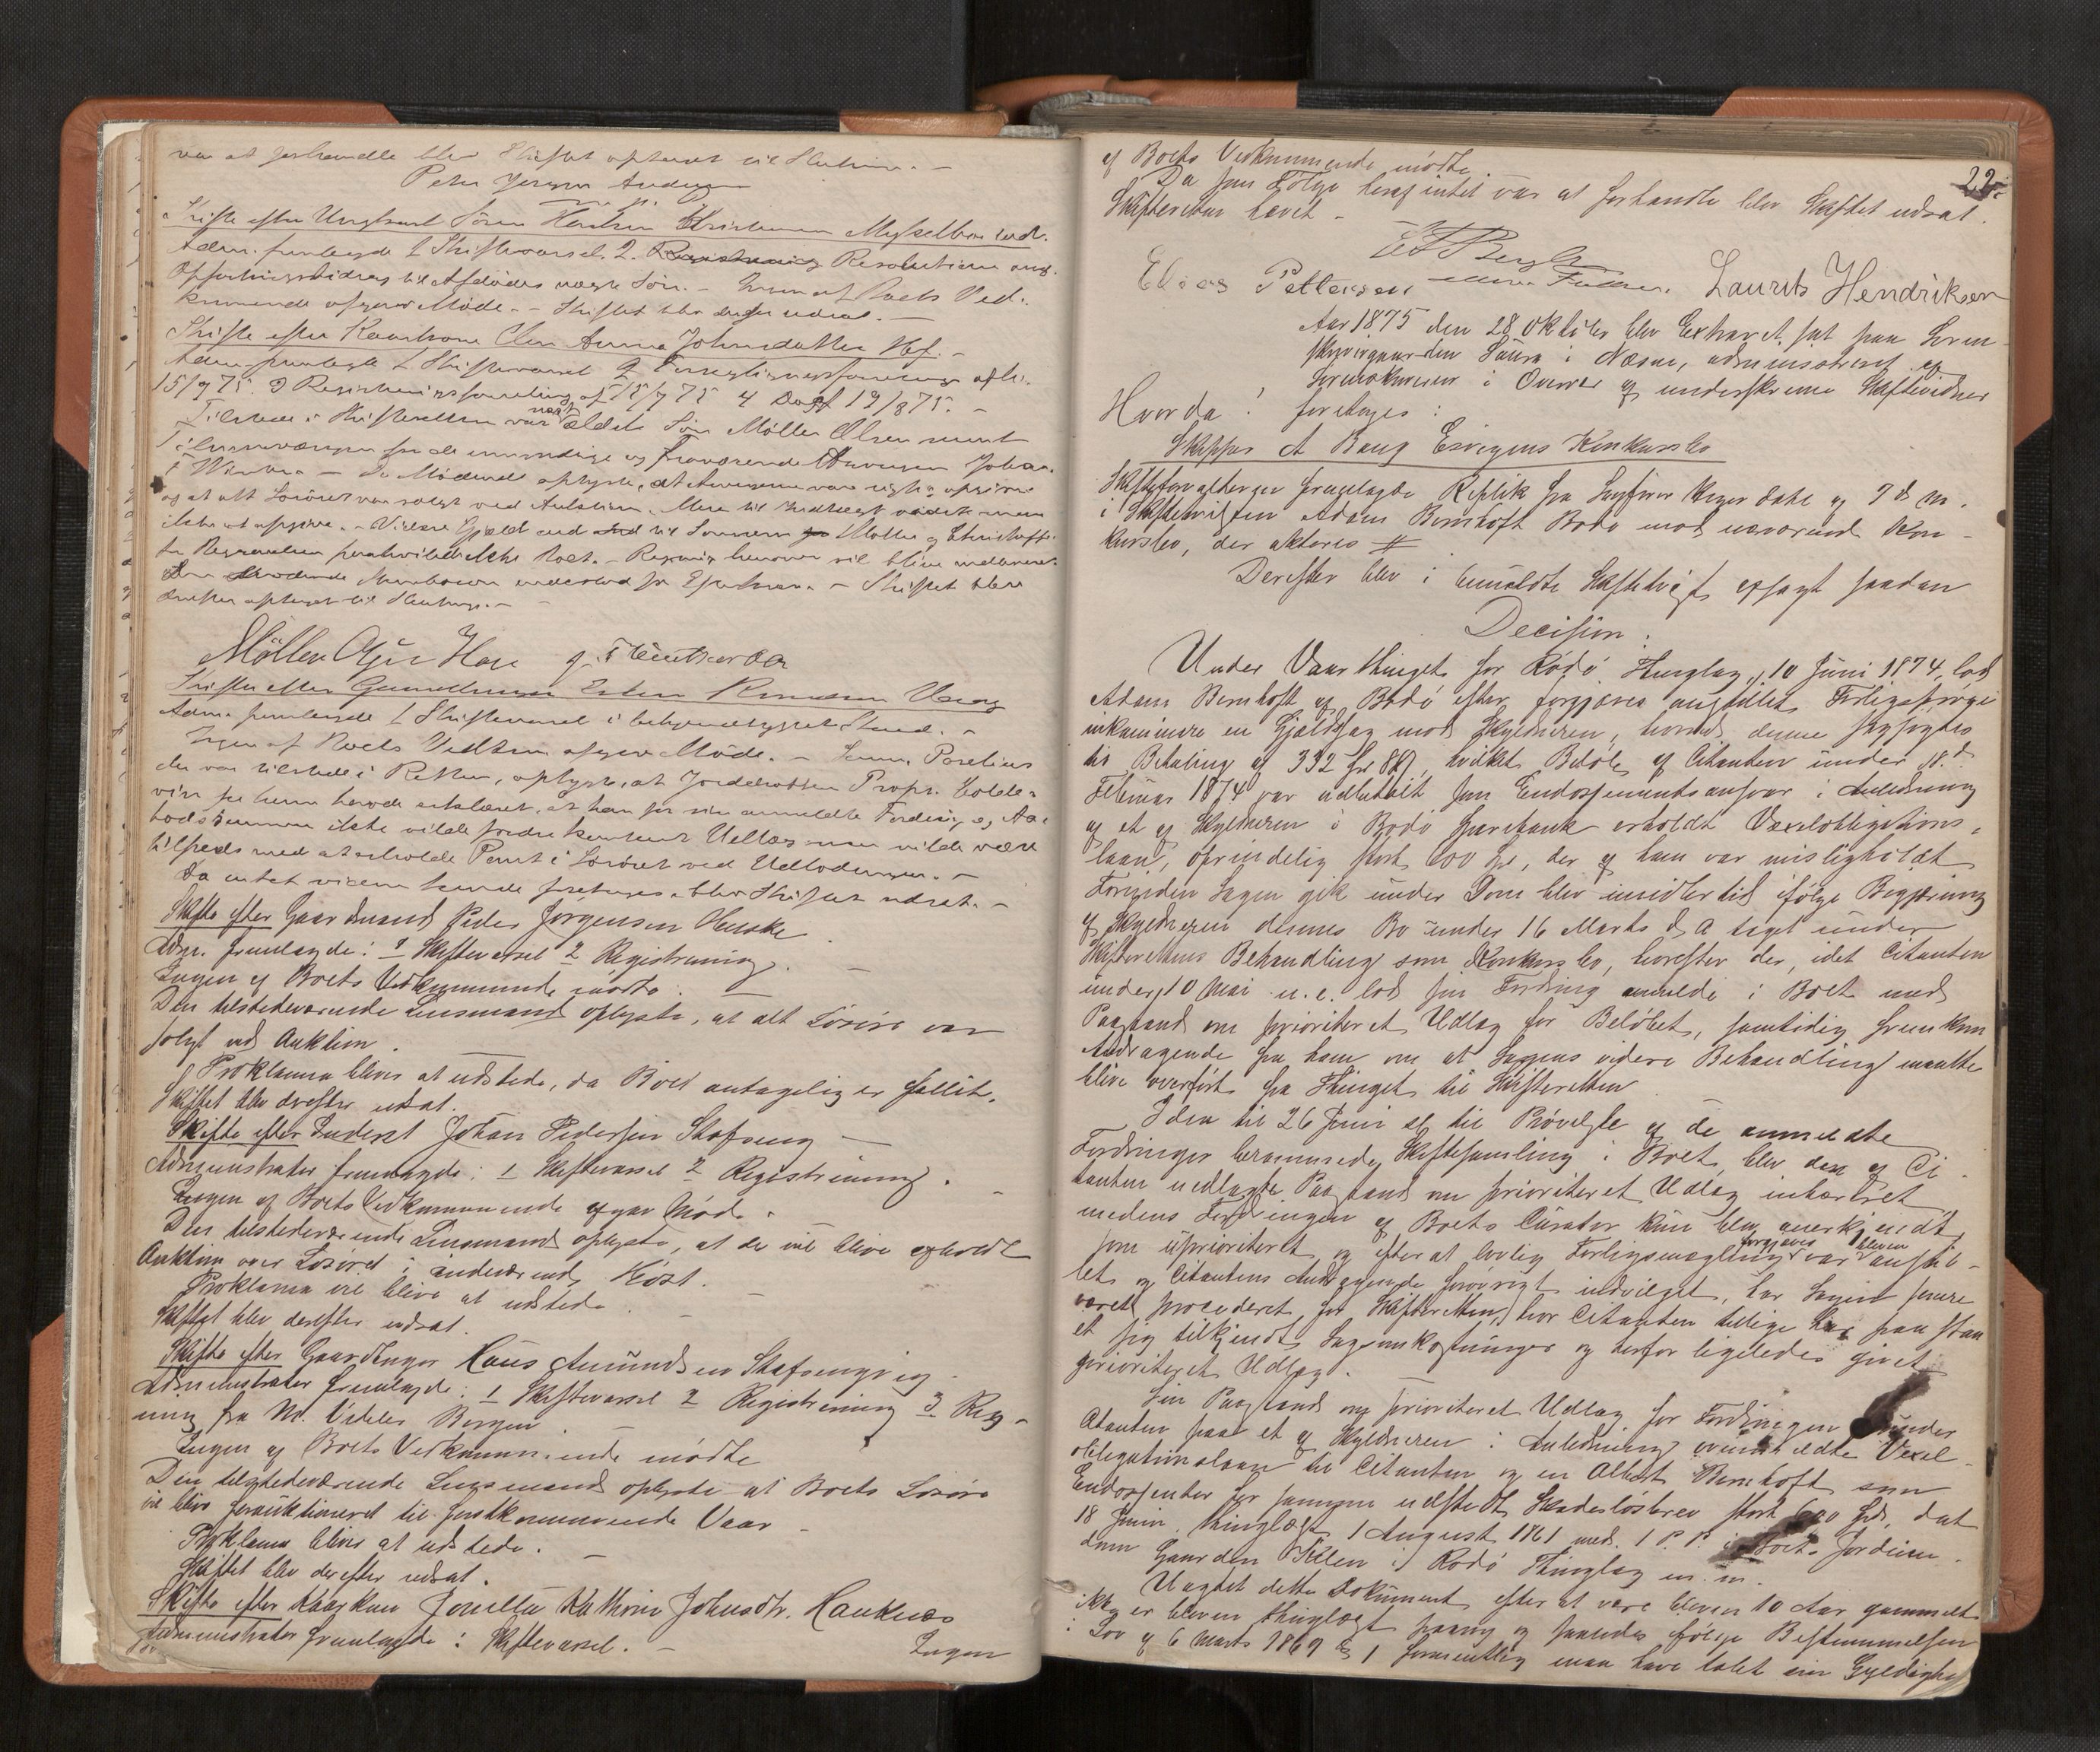 var at forhandle blev Skiftet optaget til Slutning. -
Peter Jørgen Andersen
m. p. P.
Skifte efter Ungkarl Sören Christensen Mysselbæk red.
Adm. fremlagde 1 Skiftevarsel. 2. Resolution ang.
Opfostringsbidrag til Afdödes uægte Sön. - Ingen af Boets Ved-
kommende afgav Möde. - Skiftet blev derfor udsat. -
Skifte efter Kaarkone Anna Johnsdatter Hof. -
Adm. fremlagde 1 Skiftevarsel 2 Forseglingsforretning afh.
15/7 75. 3 Registreringsforretning af 15/7 75 4 Do af 19/8 75. -
Tilstede i Skifteretten var næst ældste Sön Möller Olsen samt
Tilsynsværgen for de umyndige og fraværende Arvinger Johan
- De Mödende oplyste, at Arvingerne vare rigtig opgivne
og at alt Lösöret var solgt ved Auktion. Mere til Indtægt vidste man
ikke at opgive. - Videre Gjæld end til Sönnerne Möller og Christoffer
for Begravelsen paahvilede ikke Boet. - Regning herover vil blive indleveret.
Skiftet blev
derefter optaget til Slutning. -
Möller Olsen Hof
Skifte efter Gaardmand
Adm. fremlagde 1 Skiftevarsel i bekjendtgjort Stand. -
Ingen af Boets Vedkom. afgav Möde. -
der var tilstede i Retten, oplyste, at Jorddrotten Propr. Colde-
vin for ham havde erklæret, at han for sin anmeldte Fordring og Aa-
bodssummen ikke vilde fordre kontant Udlæg men vilde være
tilfreds med at erholde Pant i Lösöret ved Udlodningen. -
Da intet videre kunde foretages blev Skiftet udsat. -
Skifte efter Gaardmand Peder Jörgensen
Adm. fremlagde: 1 Skiftevarsel 2 Registrering. -
Ingen af Boets Vedkommende mödte. -
Den tilstedeværende Lensmand oplyste, at alt Lösöre var
solgt ved Auktion.
Proklama bliver at udstede, da Boet antagelig er fallit.
Skiftet blev derefter udsat.
Skifte efter Inderst Johan Pedersen Stafseng -
Administrator fremlagde: 1 Skiftevarsel 2 Registrering. -
Ingen af Boets Vedkommende afgav Möde.
Den tilstedeværende Lensmand oplyste, at der vil blive afholdt
Auktion over Lösöret i indeværende Höst.
Proklama vil blive at udstede. -
Skiftet blev derefter udsat.
Skifte efter Gaardbruger Hans Amundsen Stafsengvig -
Administrator fremlagde: 1 Skiftevarsel 2 Registrering 3 Reg-
ning fra M. Bergen. -
Ingen af Boets Vedkommende mödte
Den tilstedeværende Lensmand oplyste at Boets Lösöre
vil blive forauktioneret til förstkommende Vaar -
Proklama bliver at udstede. -
Skiftet blev derefter udsat.
Skifte efter Kaarkone Kathrine Johnsdtr. Hauknæs
Administrator fremlagde: Skiftevarsel. -
Ingen
22
af Boets Vedkommende mödte
Da som Fölge heraf intet var at forhandle blev Skiftet udsat.
Skifteretten hævet. -
Elias Pettersen Laurits Hendriksen
Aar 1875 den 28 Oktober blev Extraret sat paa Soren-
skrivergaarden Saura i Næsne, administreret af
Sorenskriveren i Overvær af underskrevne Skiftevidner
Hvorda! foretages:
Skipper A Bang Esvigens Konkursbo
Skifteforvalteren fremlagde Replik fra Sagförer Dahl af 7 d. M.
i Skiftetvisten Adam Bernhoft Bodö mod nærværende Kon-
kursbo, der akteres #
Derefter blev i bemeldte Skiftetvist afsagt saadan
Decision:
Under Vaarthinget for Rödö Thinglag, 10 Juni 1874, lod
Adam Bernhoft af Bodö efter forgjæves anstillet Forligspröve
inkaminere en Gjældssag mod Skyldneren, hvorved denne sagsögtes
til Betaling af 332 Spd 88 β, hvilket Belöb af Citanten under 18.d
Februar 1874 var udbetalt som Endossementsansvar i Anledning
af et af Skyldneren i Bodö Sparebank erholdt Vexelobligations-
laan, oprindelig stort 600 Spd, der af ham var misligholdt
Forinden Sagen gik under Dom blev imidlertid ifölge Begjæring
af Skyldneren dennes Bo under 16 Marts d. A taget under
Skifterettens Behandling som Konkursbo, hvorefter der, idet Citanten
under 10 Mai n. e. lod sin Fordring anmelde i Boet med
Paastand om prioriteret Udlæg for Belöbet, samtidig fremkom
Andragende fra ham om at Sagens videre Behandling maatte
blive overfört fra Thinget til Skifteretten
I den til 26 Juni til Prövelse af de anmeldte
Fordringer berammede Skiftesamling i Boet, blev den af Ci-
tanten nedlagte Paastand om prioriteret Udlæg
medens Fordringen af Boets Curator kun blev anerkjendt
som uprioriteret og efter at lovlig Forligsmægling forgjæves var bleven anstil-
let og Citantens Andragende forövrigt indvilget, har Sagen senere
været procederet for Skifteretten, hvor Citanten tillige har paastaa-
et sig tilkjendt Sagsomkostninger og herfor ligeledes givet
prioriteret Udlæg.
Sin Paastand om prioriteret Udlæg for Fordringen
Citanten paa et af Skyldneren i Anledning ovenmeldte Vexel-
obligationslaan til Citanten og en Albert Bernhoft som
Endossenter for samme udstedt Skadeslösbrev stort 600 Spd, dat
18 Juni, thinglæst 1 August 1861 med 1 P. P. i Boets Jordeien-
dom Gaarden Kilen i Rödö Thinglag m. m.
Uagtet dette Dokument efter at være bleven 10 Aar gammelt
ikke er bleven thinglæst paany og saaledes ifölge Bestemmelsen
i Lov af 6 Marts 1869 § 1 formentlig maa have tabt sin Gyldighed